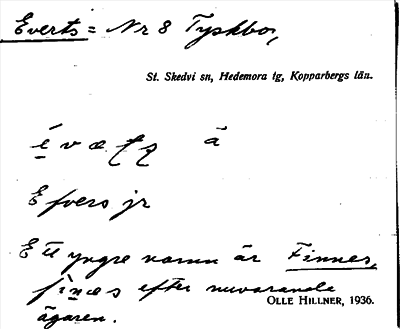 Everts = Nr 8 Tyskbo,
St. Skedvi sn, Hedemora tg, Kopparbergs län.
ä
Efvers jr
Ett yngre namn är Finnes,
efter nuvarande
ägaren.
OLLE HILLNER, 1936.